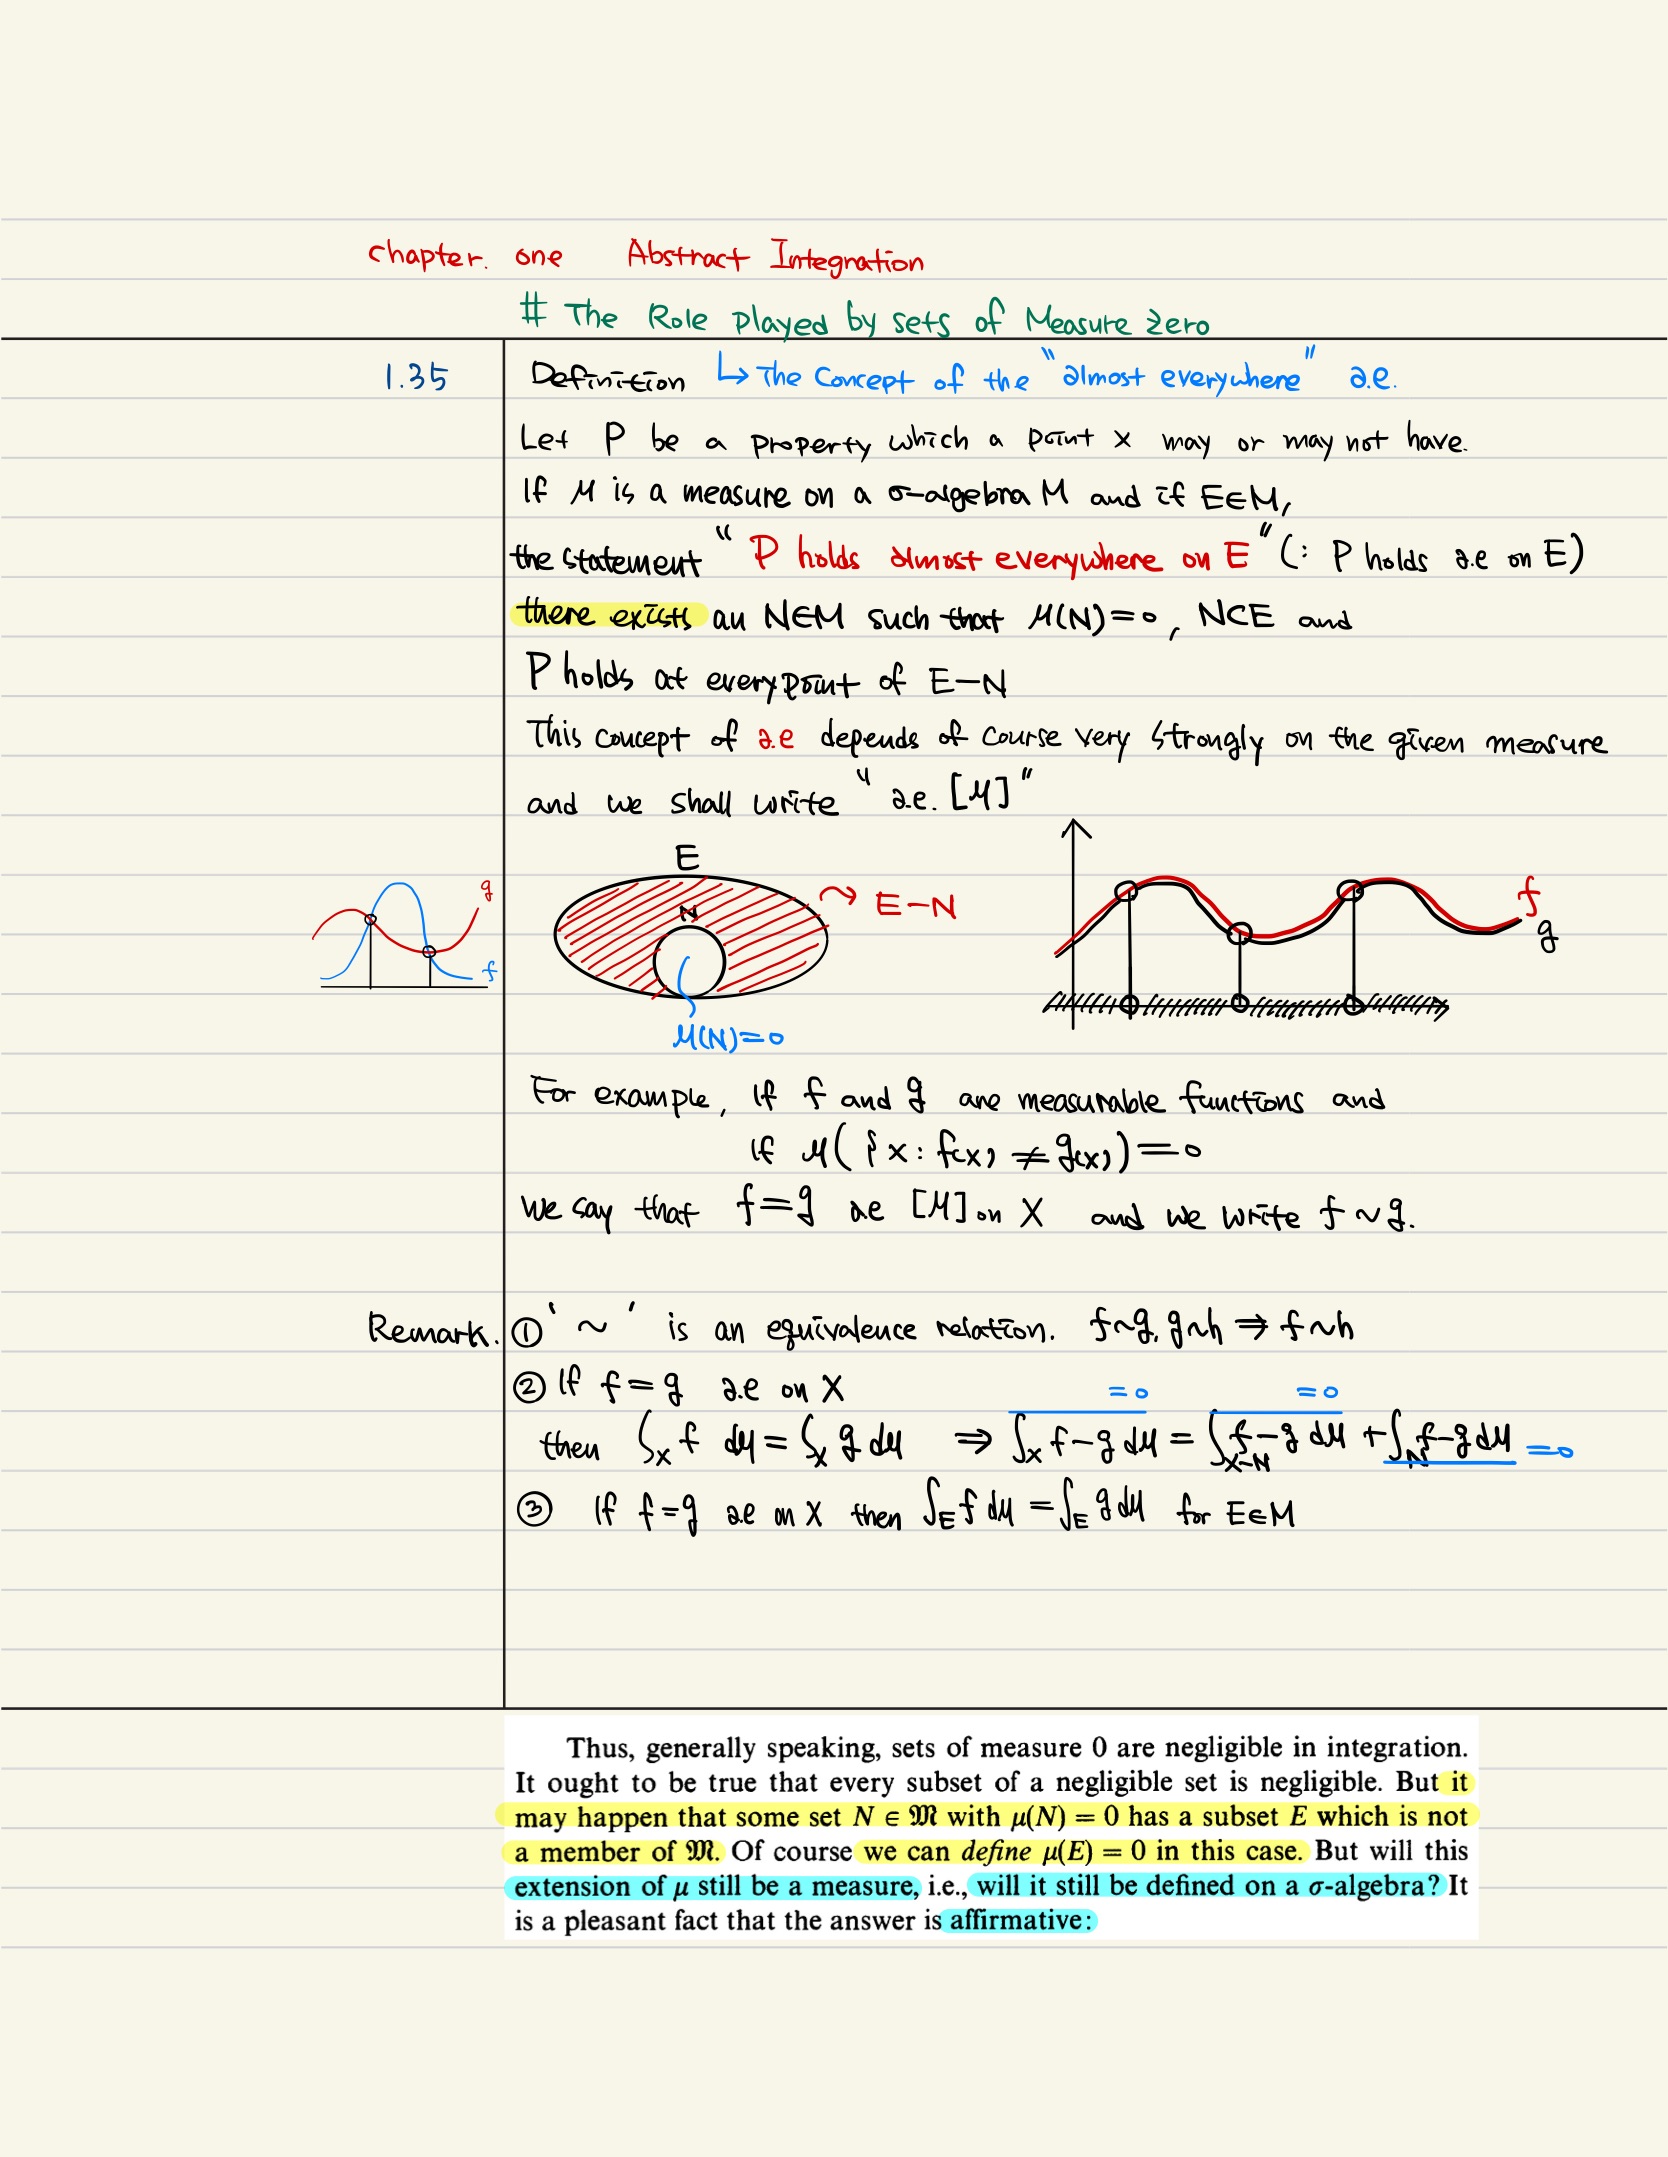 chapter. one Abstract Integration
# The Role played by sets of Measure zero
1.35 Definition ↳ The concept of the "almost everywhere" a.e.
Let P be a property which a point x may or may not have.
If μ is a measure on a σ-algebra M and if E∈M,
the statement "P holds almost everywhere on E" (: P holds a.e on E)
there exists an N∈M such that μ(N)=0, N⊂E and
P holds at every point of E-N
This concept of a.e depends of course very strongly on the given measure
and we shall write "a.e. [μ]"
g
f
E
N
E-N
μ(N)=0
f
g
For example, If f and g are measurable functions and
if μ({x: f(x) ≠ g(x)) = 0
we say that f=g ae [μ] on X and we write f~g.
Remark. ① '~' is an equivalence relation. f~g, g~h ⇒ f~h
② If f=g a.e on X
=0 =0
then ∫_X f dμ = ∫_X g dμ ⇒ ∫_X f-g dμ = ∫_{X-N} f-g dμ + ∫_N f-g dμ =0
③ If f=g ae on X then ∫_E f dμ = ∫_E g dμ for E∈M
Thus, generally speaking, sets of measure 0 are negligible in integration.
It ought to be true that every subset of a negligible set is negligible. But it
may happen that some set N ∈ 𝔐 with μ(N) = 0 has a subset E which is not
a member of 𝔐. Of course we can define μ(E) = 0 in this case. But will this
extension of μ still be a measure, i.e., will it still be defined on a σ-algebra? It
is a pleasant fact that the answer is affirmative: